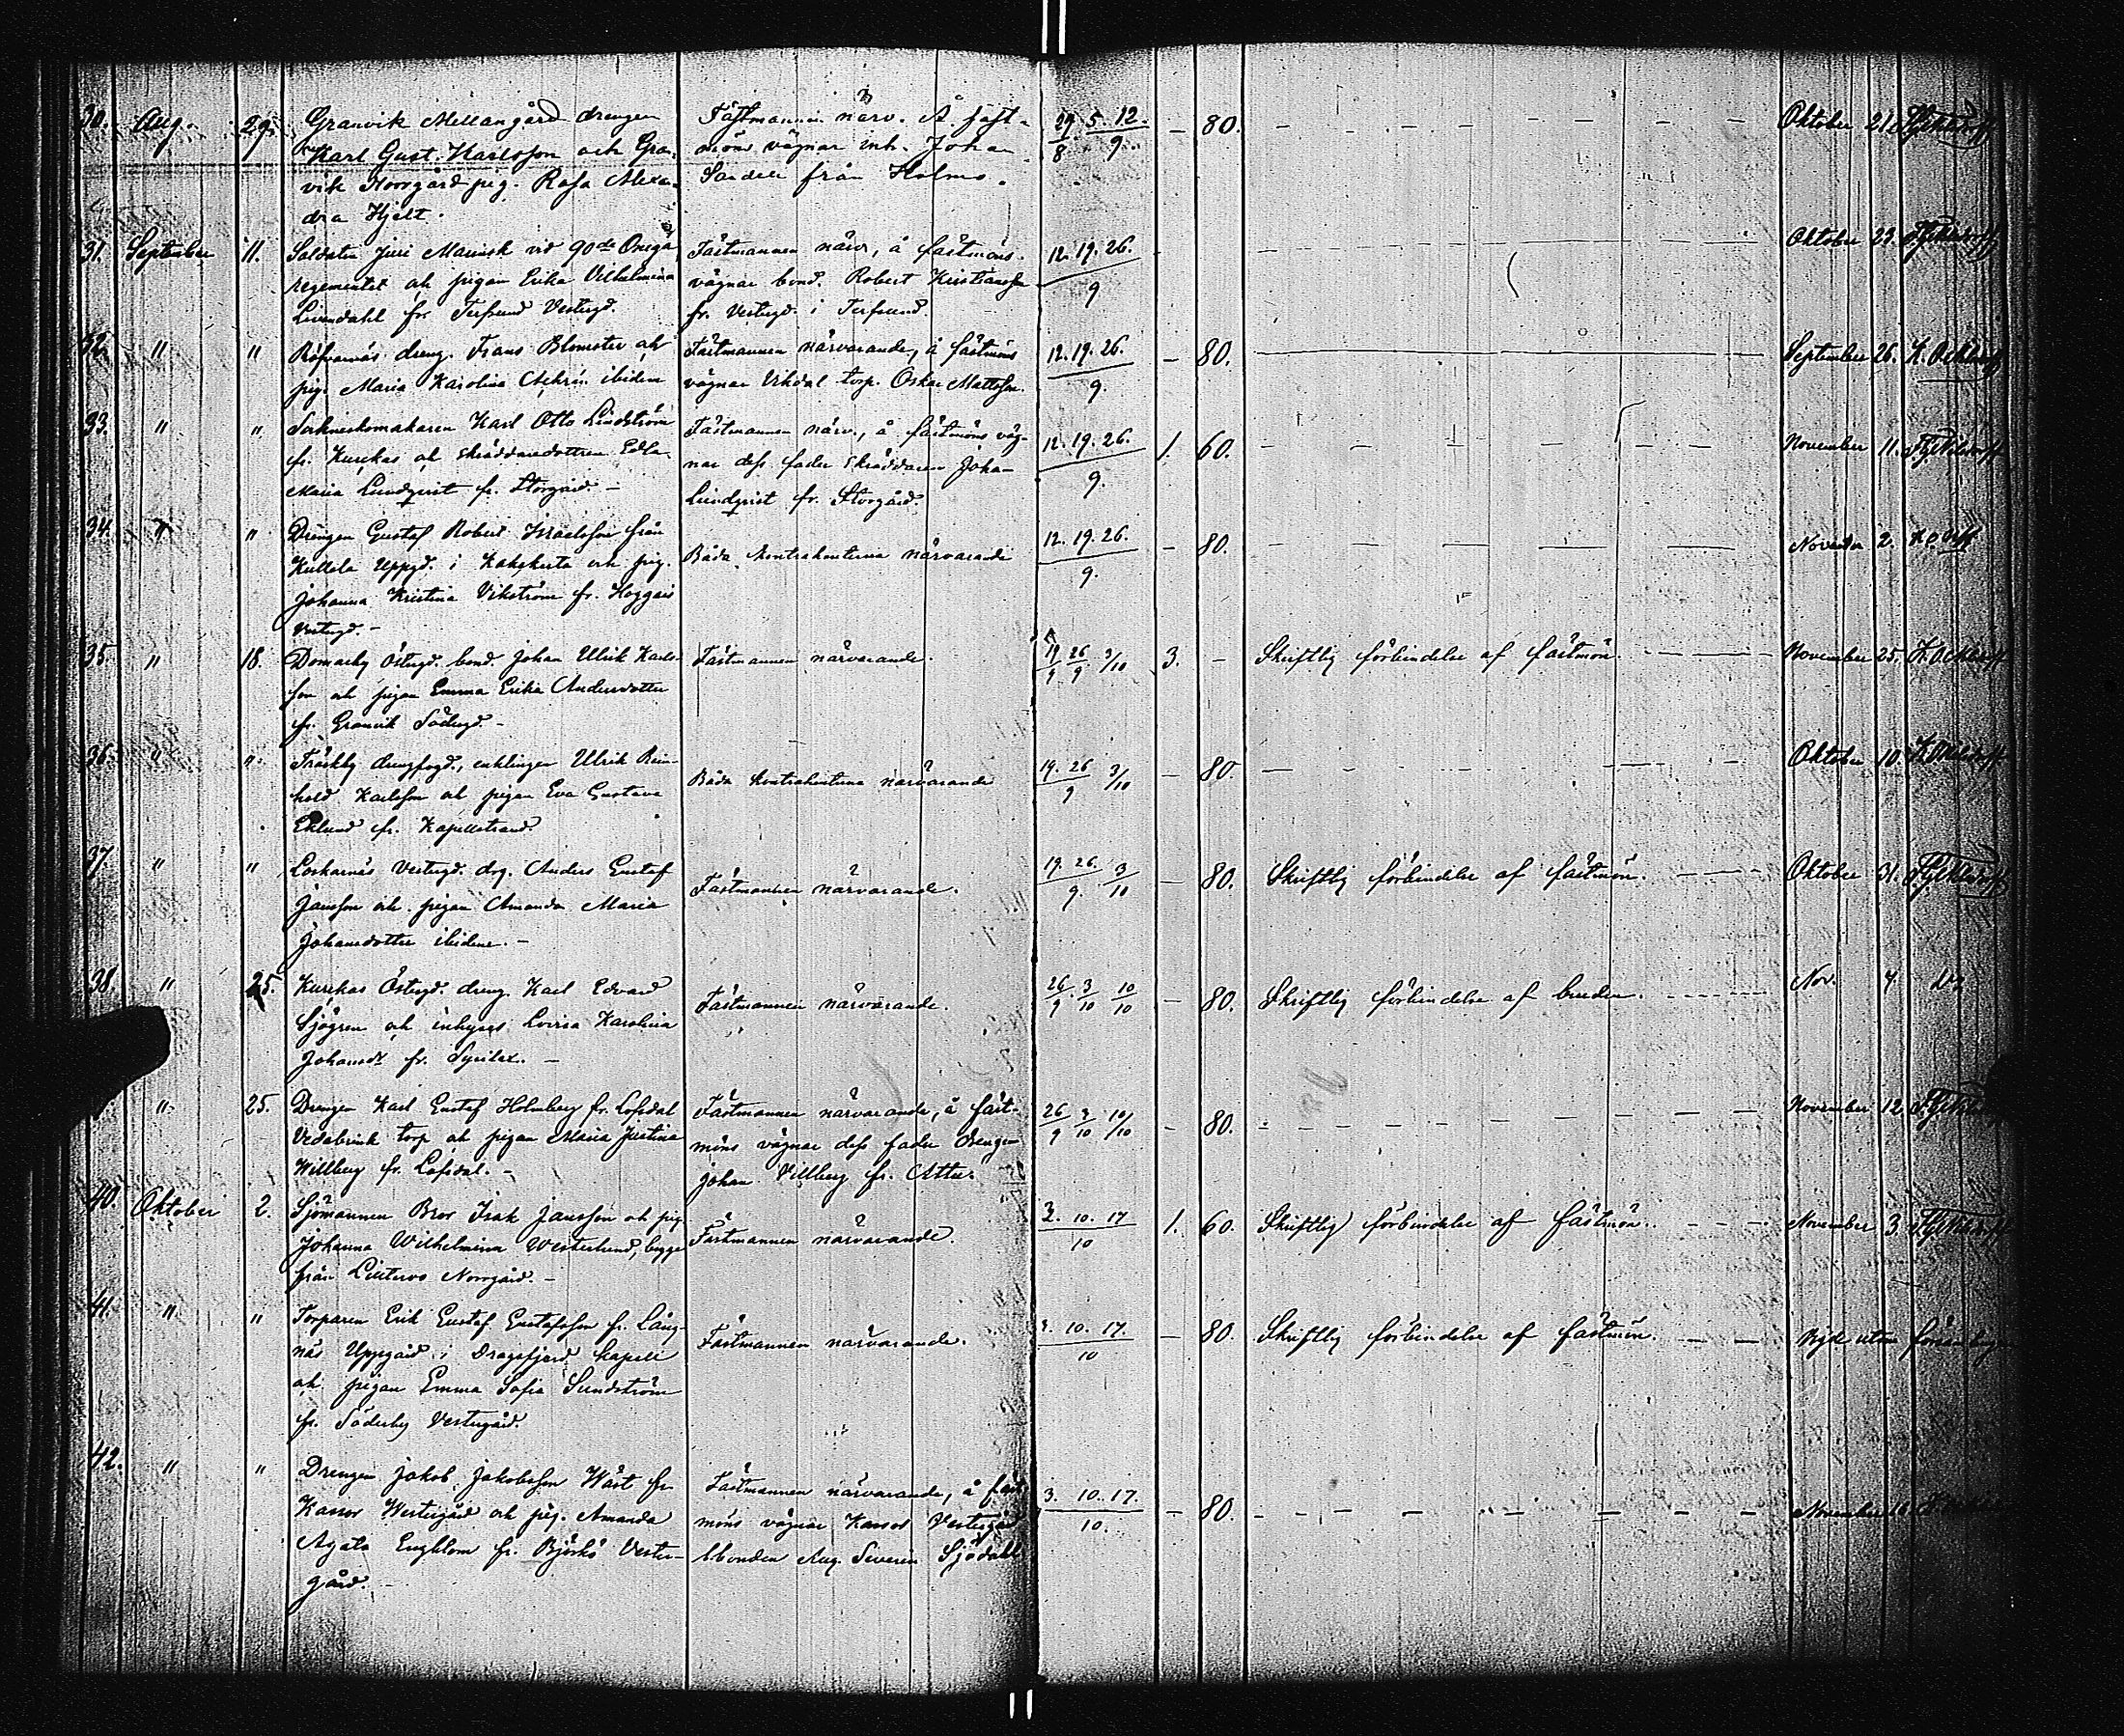 30. Aug. 29. Granvik Mellangård drengen Fästmannen närv. Å fäst- 29/8 5. 12./9. — 80. Oktober 21
Karl Gust. Karlsson och Gran- möns vägnar inh. Johan
vik Norrgård pig. Rosa Alexan- Sandell från Holmo.
dra Hjelt.
31. September 11. Soldaten Juri vid 90de Onega Fästmannen närv, å fästmöns 12. 19. 26./9 Oktober 23.
regementet och pigan Erika Vilhelmina vägnar bond. Robert Kristiansson
fr. Terfsund Vestergd. fr. Vestergd. i Terfsund.
32. " " Röfvarnäs dreng. Frans Blomster och Fästmannen närvarande, å fästmöns 12. 19. 26./9. — 80. September 26.
pig. Maria Karolina ibidem vägnar Vikdal torp. Oskar Mattsson.
33. " " Karl Otto Lindström Fästmannen närv., å fästmöns väg- 12. 19. 26./9. 1. 60. November 11.
fr. Kurckas och skräddaredottren Edla nar dess fader skräddaren Johan
Maria Lundqvist fr. Storgård. — Lundqvist fr. Storgård.
34. " " Drengen Gustaf Robert Israelsson från Båda kontrahenterna närvarande 12. 19. 26./9. — 80. November 2.
Kullela Uppgd. i Kakskerta och pig.
Johanna Kristina Vikström fr. Hoggais
Vestergd. —
35. " 18. Domarby Östergd. bond. Johan Ulrik Karls- Fästmannen närvarande. 19/9 26/9 3/10 3. — Skriftlig förbindelse af fästmön. November 25.
son och pigan Emma Erika Andersdotter
fr. Granvik Södergd. —
36. " " Träskby drengfogd., enklingen Ulrik Rein- Båda kontrahenterna närvarande 19. 26/9 3/10 — 80. Oktober 10.
hold Karlsson och pigan Eva Gustava
Eklund fr. Kapellstrand.
37. " " Loskarnäs Vestergd. drg. Anders Gustaf Fästmannen närvarande. 19. 26./9 3/10 — 80. Skriftlig förbindelse af fästmön. Oktober 31.
Jansson och pigan Amanda Maria
Johansdotter ibidem. —
38. " 25. Kurckas Östergd. dreng. Karl Edvard Fästmannen närvarande. 26/9 3/10 10/10 — 80. Skriftlig förbindelse af bruden. Nov. 7.
Sjögren och inhyses Lovisa Karolina
Johansdr fr. —
" 25. Drengen Karl Gustaf Holmberg fr. Lofsdal Fästmannen närvarande, å fäst- 26/9 3/10 10/10 — 80. November 12.
Vedabrink torp och pigan Maria Justina möns vägnar dess fader drengen
Willberg fr. Lofsdal. — Johan Villberg fr. Attu.
40. Oktober 2. Sjömannen Bror Isak Jansson och pig. Fästmannen närvarande. 3. 10. 17/10 1. 60. Skriftlig förbindelse af fästmön. November 3.
Johanna Wilhelmina Westerlund, bägge
från Norrgård. —
41. " " Torparen Erik Gustaf Gustafsson fr. Lång- Fästmannen närvarande. 3. 10. 17./10 — 80. Skriftlig förbindelse af fästmön. utan
näs Uppgård i Dragsfjerd kapell
och pigan Emma Sofia Sundström
fr. Söderby Vestergård.
42. " " Drengen Jakob Jakobsson Wäst fr. Fästmannen närvarande, å fäst- 3. 10. 17./10. — 80. November
Kassor Westergård och pig. Amanda möns vägnar Kassor Vestergård
Agata Engblom fr. Björkö Vester- bonden Aug. Severin Sjödahl
gård.